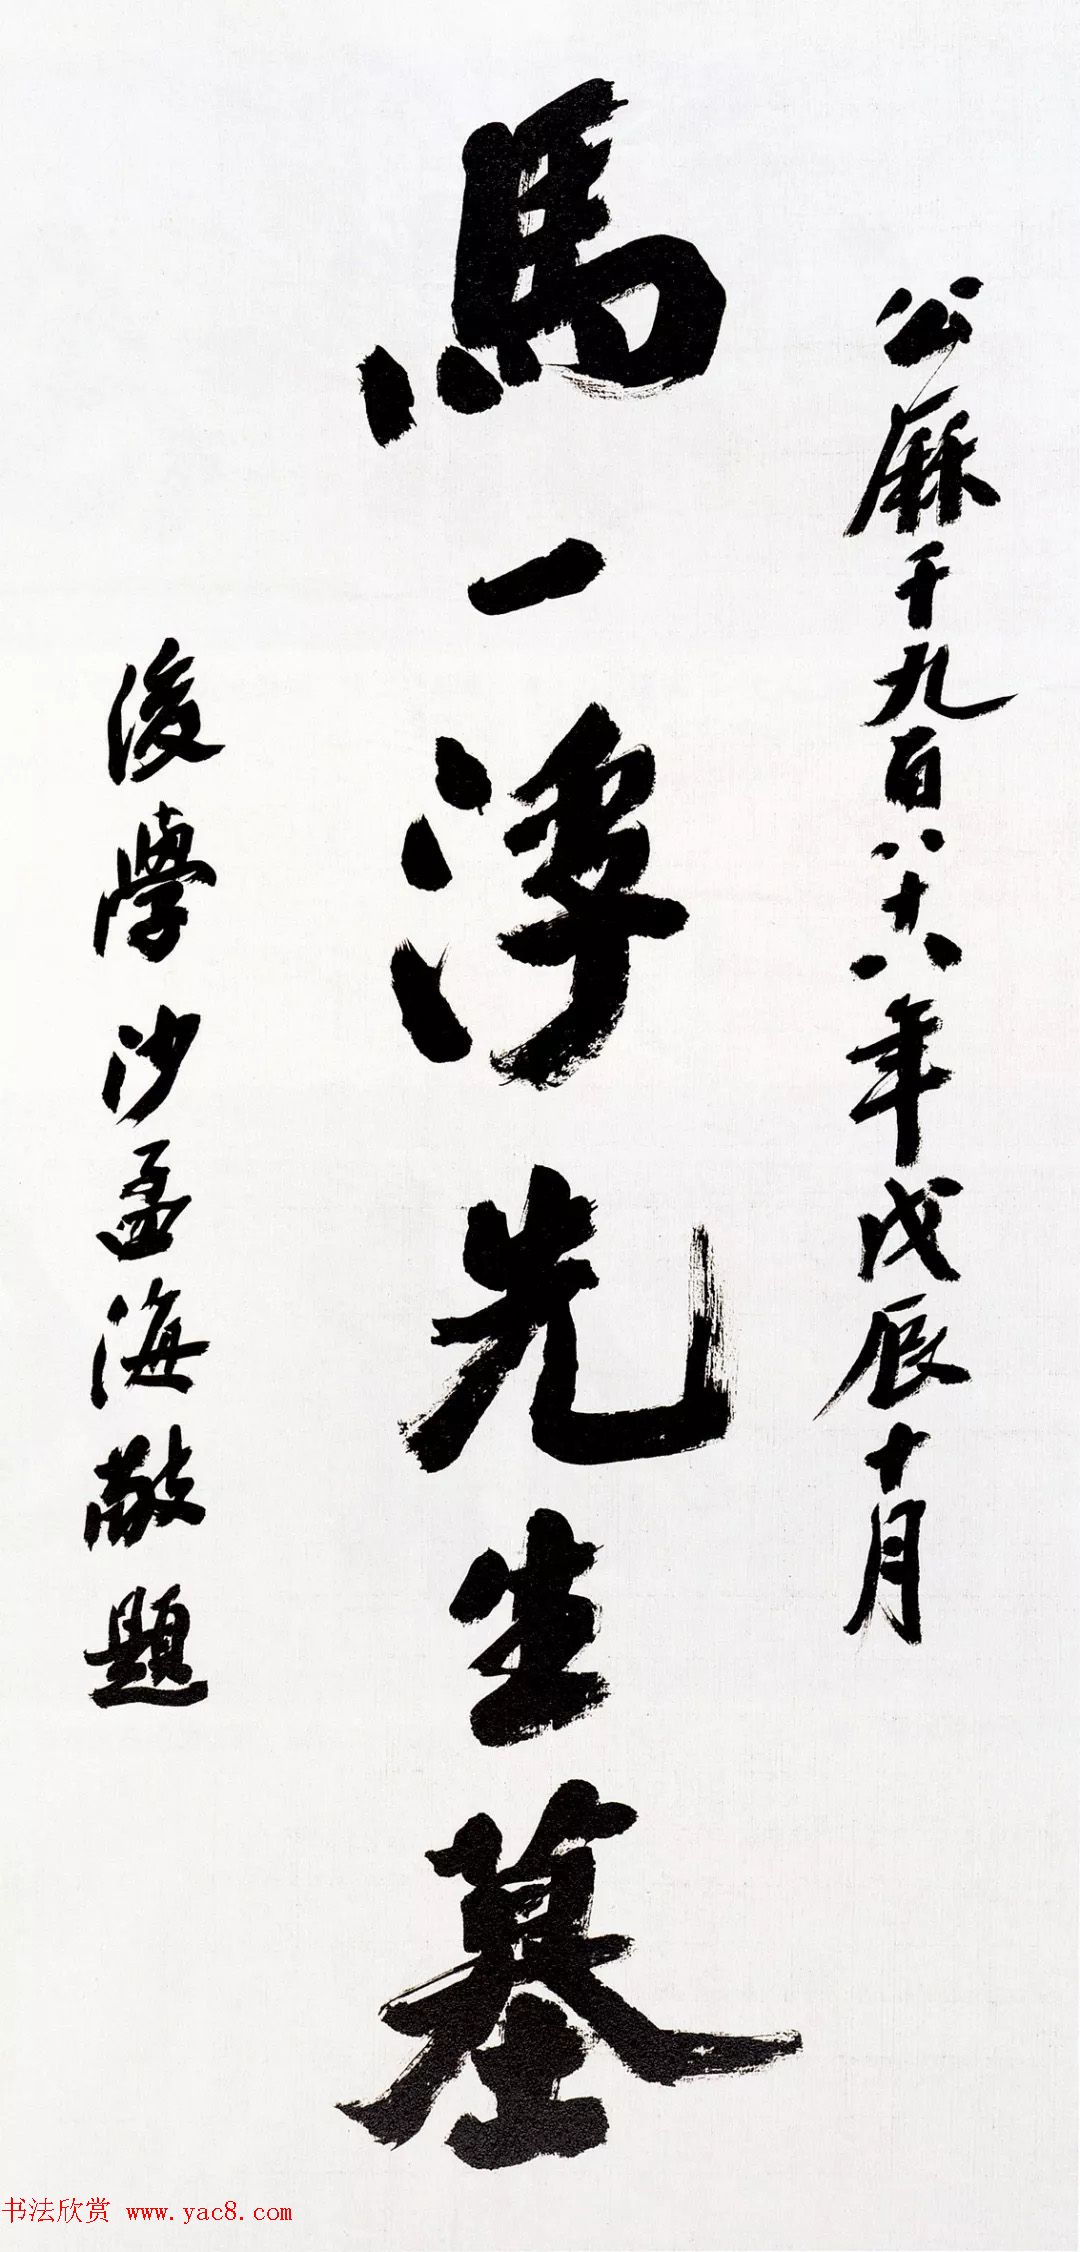 公厤千九百八十八年戊辰十月
馬一浮先生墓
後學沙孟海敬題
书法欣赏 www.yac8.com